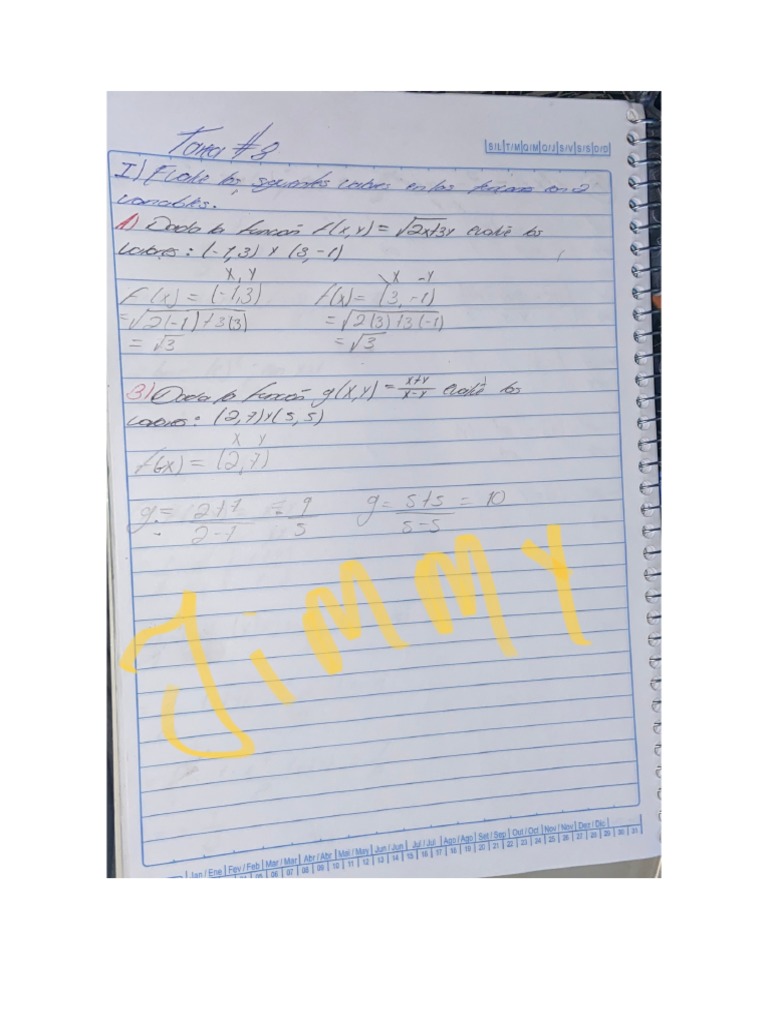 Tarea #8
S/L T/M Q/M Q/J S/V S/S D/D
I) Evalúe los siguientes valores en las funciones con 2
variables.
1) Dada la función f(x,y) = √2x+3y evalúe los
valores: (-1,3) y (3,-1)
x, y x -y
f(x) = (-1,3) f(x) = (3,-1)
= √2(-1)+3(3) = √2(3)+3(-1)
= √3 = √3
3) Dada la función g(x,y) = x+y/x-y evalúe los
valores: (2,7) y (5,5)
x y
f(x) = (2,7)
g = 2+7/2-7 = 9/5 g = 5+5/5-5 = 10
JiMMY
Jan / Ene Fev / Feb Mar / Mar Abr / Abr Mai / May Jun / Jun Jul / Jul Ago / Ago Set / Sep Out / Oct Nov / Nov Dez / Dic
06 07 08 09 10 11 12 13 14 15 16 17 18 19 20 21 22 23 24 25 26 27 28 29 30 31